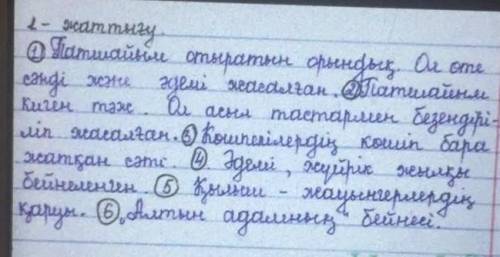 2 - жаттығу.
① Патшайым отыратын орындық. Ол өте
сәнді және әдемі жасалған. ② Патшайым
киген тәж. Ол асыл тастармен безендірі-
ліп жасалған. ③ Көшпелілердің көшіп бара
жатқан сәті. ④ Әдемі, жүйрік жылқы
бейнеленген. ⑤ Қылыш - жауынгерлердің
қаруы. ⑥ „Алтын адамның" бейнесі.